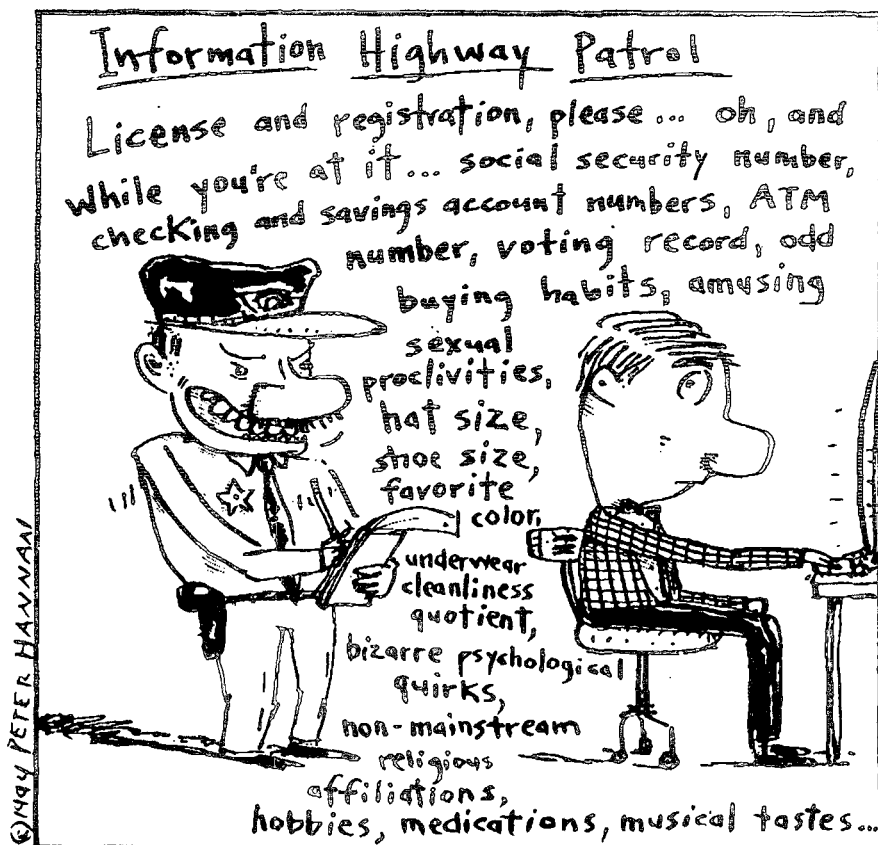 Information Highway Patrol
License and registration, please... oh, and
while you're at it... social security number,
checking and savings account numbers, ATM
number, voting record, odd
buying habits, amusing
sexual
proclivities,
hat size,
shoe size,
favorite
color,
underwear
cleanliness
quotient,
bizarre psychological
quirks,
non-mainstream
religious
affiliations,
hobbies, medications, musical tastes...
©1994 PETER HANNAN